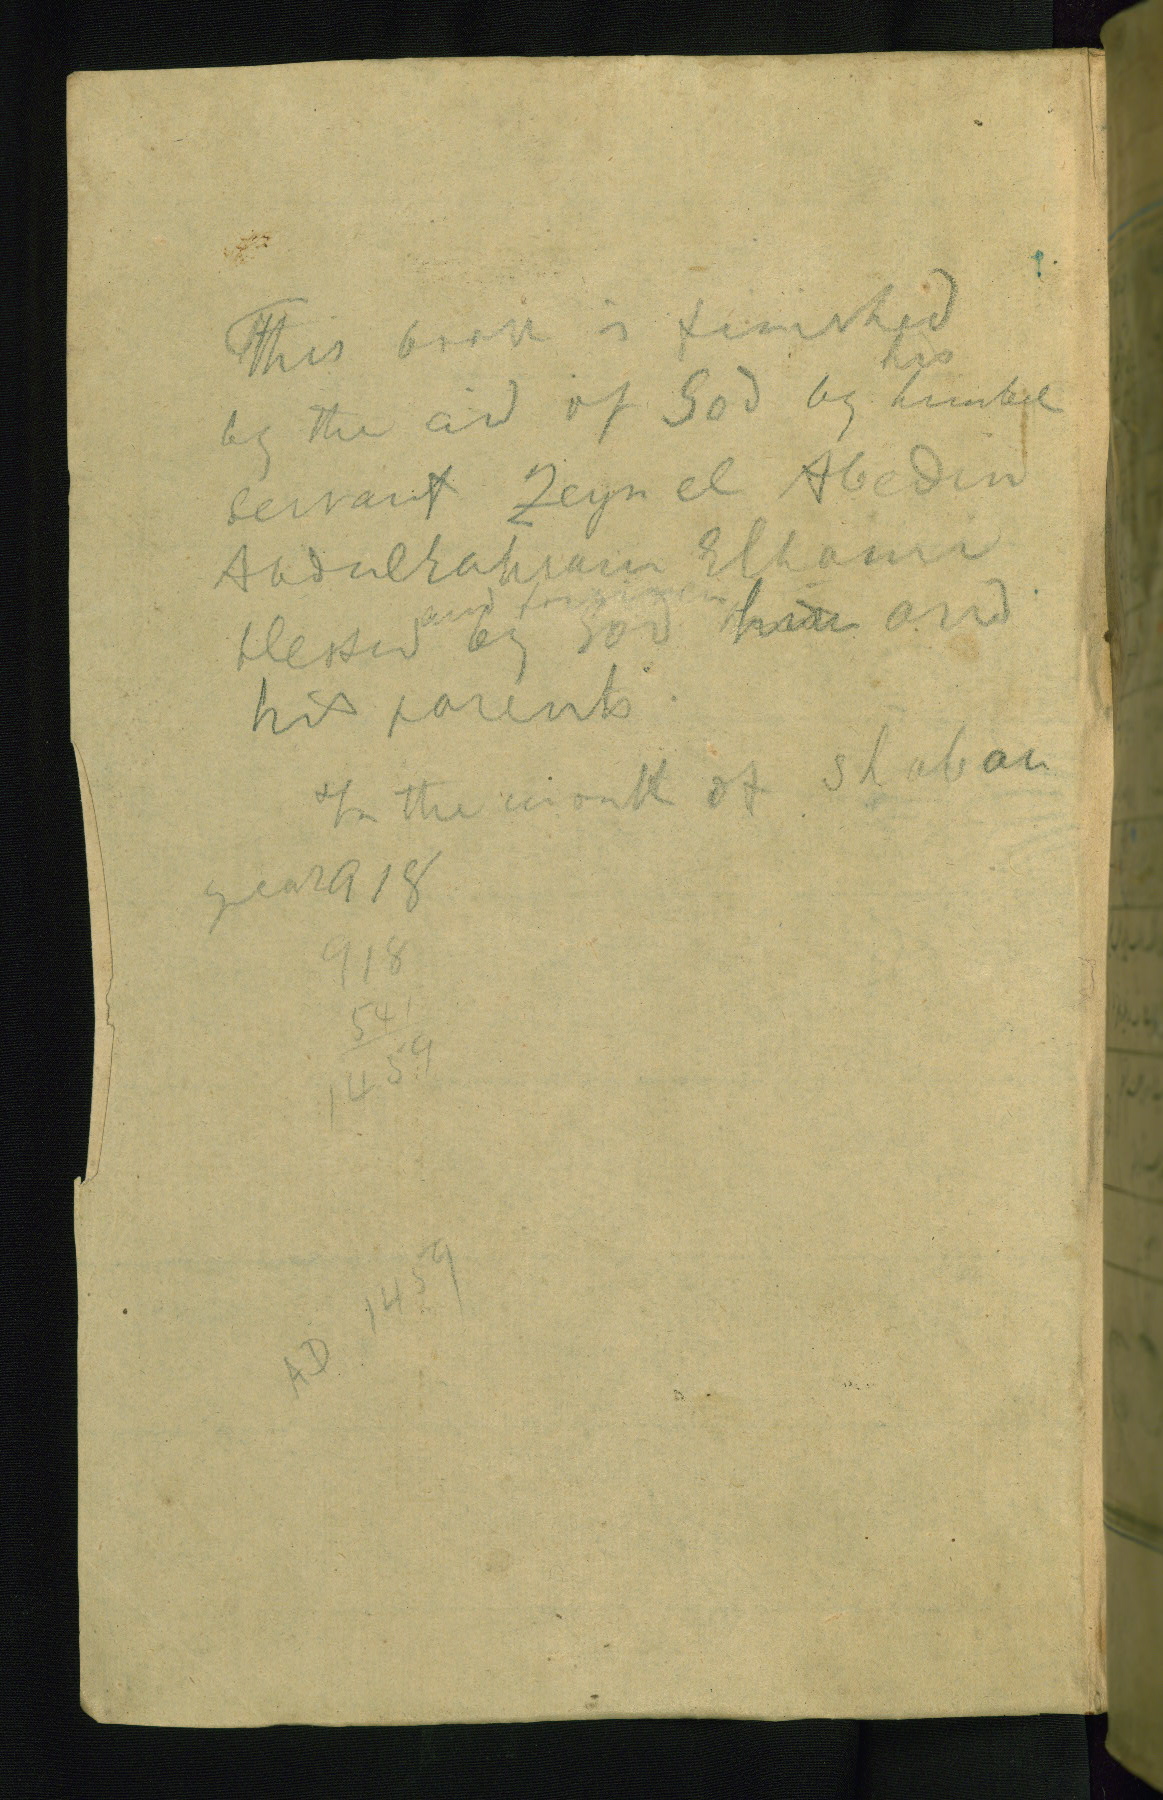 This book is finished
by the aid of God by his humbel
servant Zeyn el Abedin
Abdulrahman
blessed and forgiven by God him and
his parents.
In the month of Shaban
year 918
918
541
1459
AD 1459